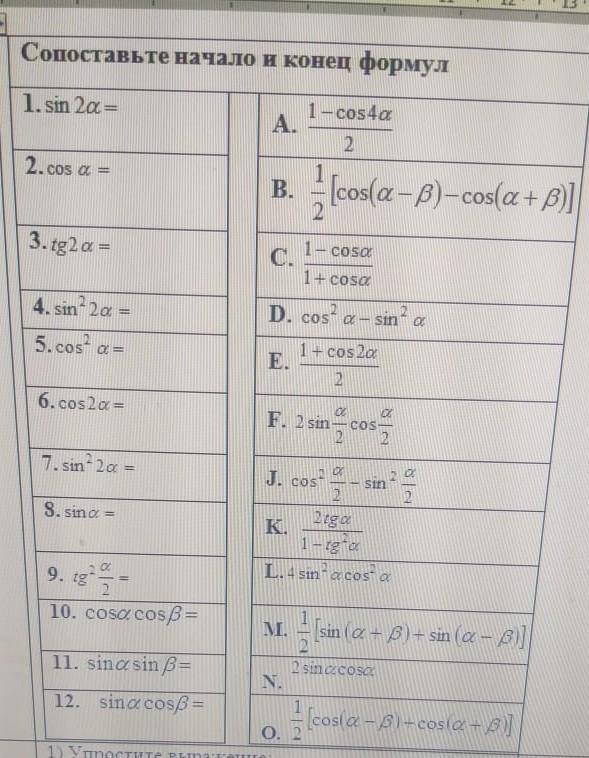 12 13
Сопоставьте начало и конец формул
1. sin 2α =
A. (1 − cos4α)/2
2. cos α =
B. 1/2 [cos(α − β) − cos(α + β)]
3. tg2α =
C. (1 − cosα)/(1 + cosα)
4. sin² 2α =
D. cos² α − sin² α
5. cos² α =
E. (1 + cos2α)/2
6. cos2α =
F. 2 sin α/2 cos α/2
7. sin² 2α =
J. cos² α/2 − sin² α/2
8. sinα =
K. 2tgα/(1 − tg²α)
9. tg² α/2 =
L. 4 sin² α cos² α
10. cosα cosβ =
M. 1/2 [sin(α + β) + sin(α − β)]
11. sinα sinβ =
N. 2sinαcosα
12. sinα cosβ =
O. 1/2 [cos(α − β) + cos(α + β)]
1) Упростите выражение: